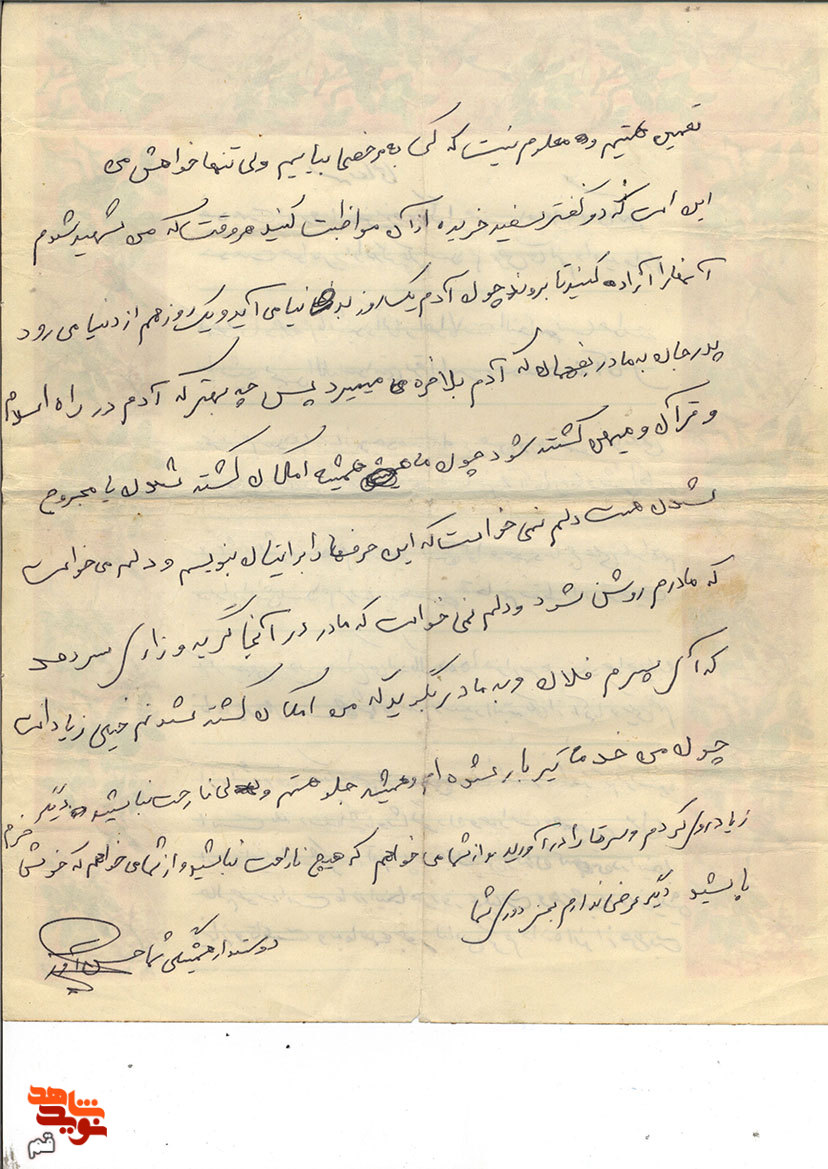 تعمین هستیم و معلوم نیست که کی به مرخصی بیاییم ولی تنها خواهش می
این است که دو کفتر سفید خریده از آن مواظبت کنید هر وقت که من شهید شدم
آنها را آزاده کنید تا بروند چون آدم یک روز به دنیا می آید و یک روز هم از دنیا می رود
پدر جان به مادر بفهمان که آدم بلاخره می میرد پس چه بهتر که آدم در راه اسلام
و قرآن و میهن کشته شود چون ما همیشه امکان کشته شدن یا مجروح
شدن هست دلم نمی خواست که این حرفها را برایتان بنویسم و دلم می خواست
که مادرم روشن شود و دلم نمی خواست که مادر در آنجا گریه و زاری سر دهد
که آی پسرم فلان و به مادر بگویید که من امکان کشته شدنم خیلی زیاد است
چون من خدمه تیربار شده ام و همیشه جلو هستم ولی ناراحت نباشید دیگر
زیاد روی کردم و سر شما را درد آوردید و از شما می خواهم که هیچ ناراحت نباشید و از شما می خواهم که خوش خرم
باشید دیگر عرضی ندارم بجز دوری شما
دوستدار همیشگی شما حسن
نوید شاهد
قم